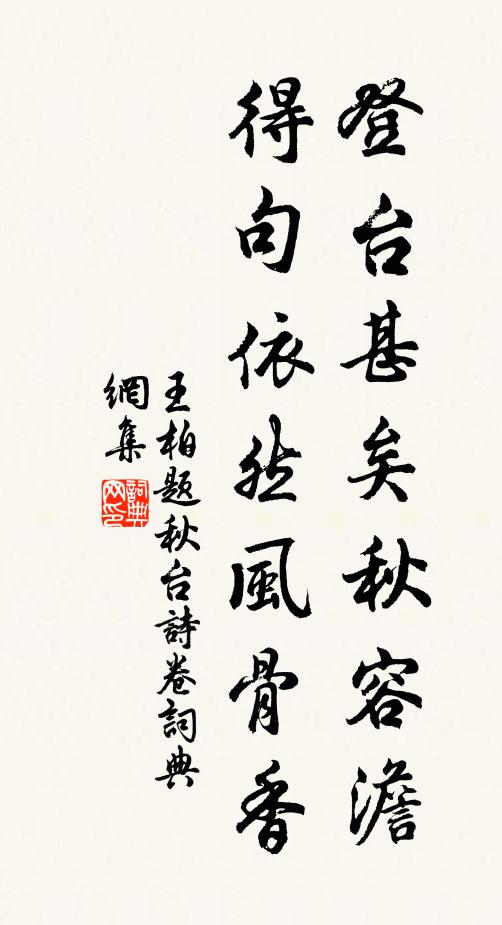 登台甚矣秋容澹
得句依然風骨香
王柏题秋台詩卷詞典
網集
詞典
网印